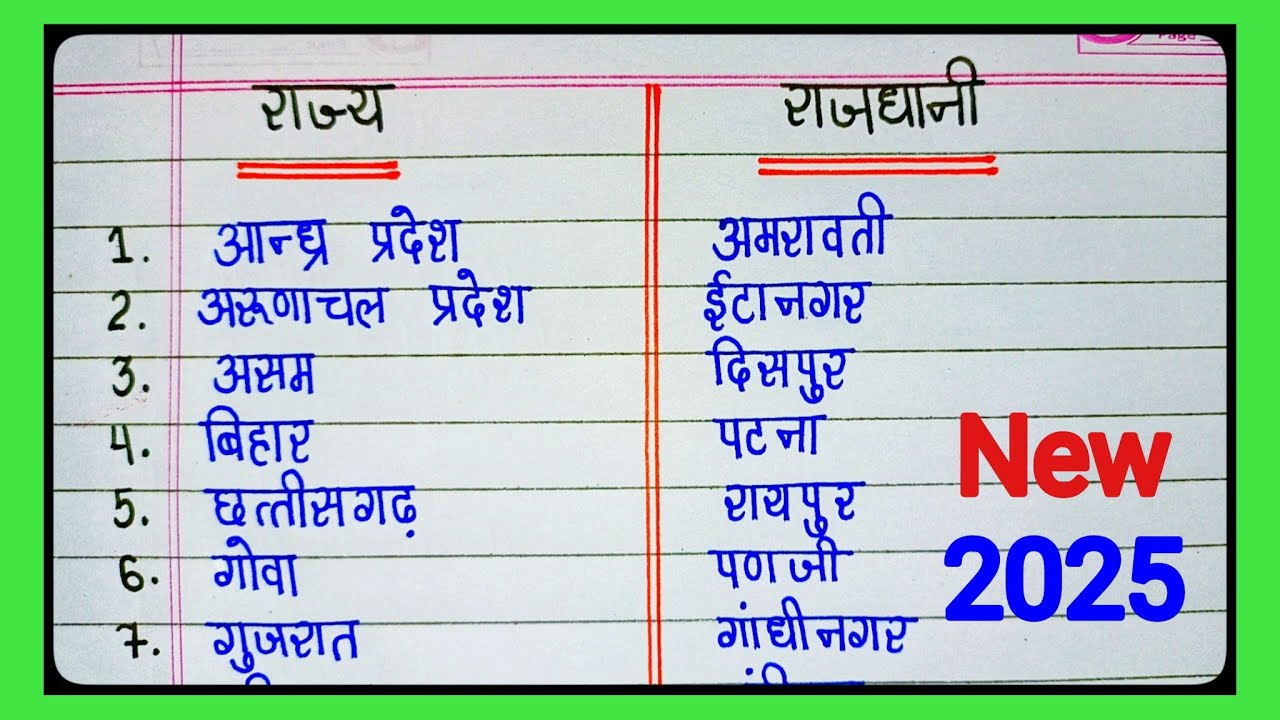 Page
राज्य राजधानी
1. आन्ध्र प्रदेश अमरावती
2. अरूणाचल प्रदेश ईटानगर
3. असम दिसपुर
4. बिहार पटना
5. छत्तीसगढ़ रायपुर
6. गोवा पणजी
7. गुजरात गांधीनगर
New
2025